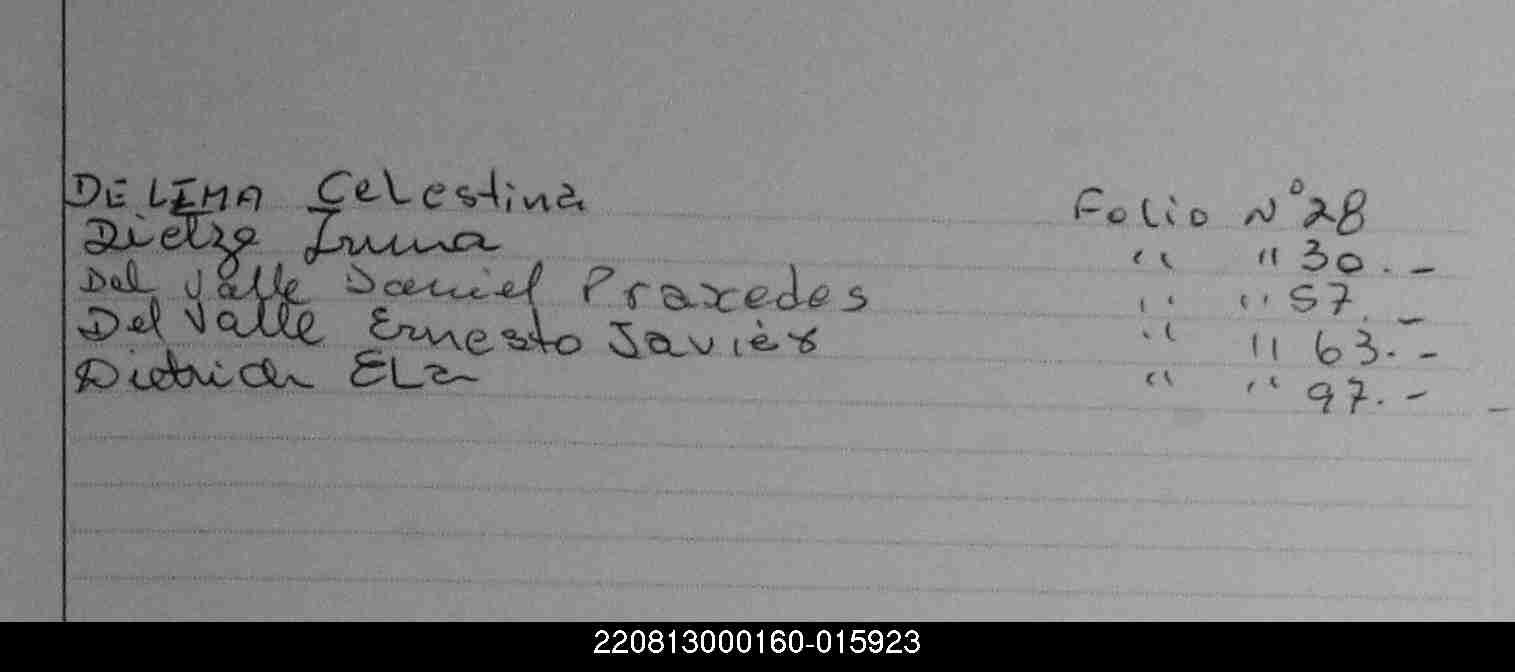 DE LIMA Celestina Folio N° 28
Dietze Irma " " 30.-
Del Valle Daniel Praxedes " " 57.-
Del Valle Ernesto Javier " " 63.-
Dietrich ELa " " 97.-
220813000160-015923